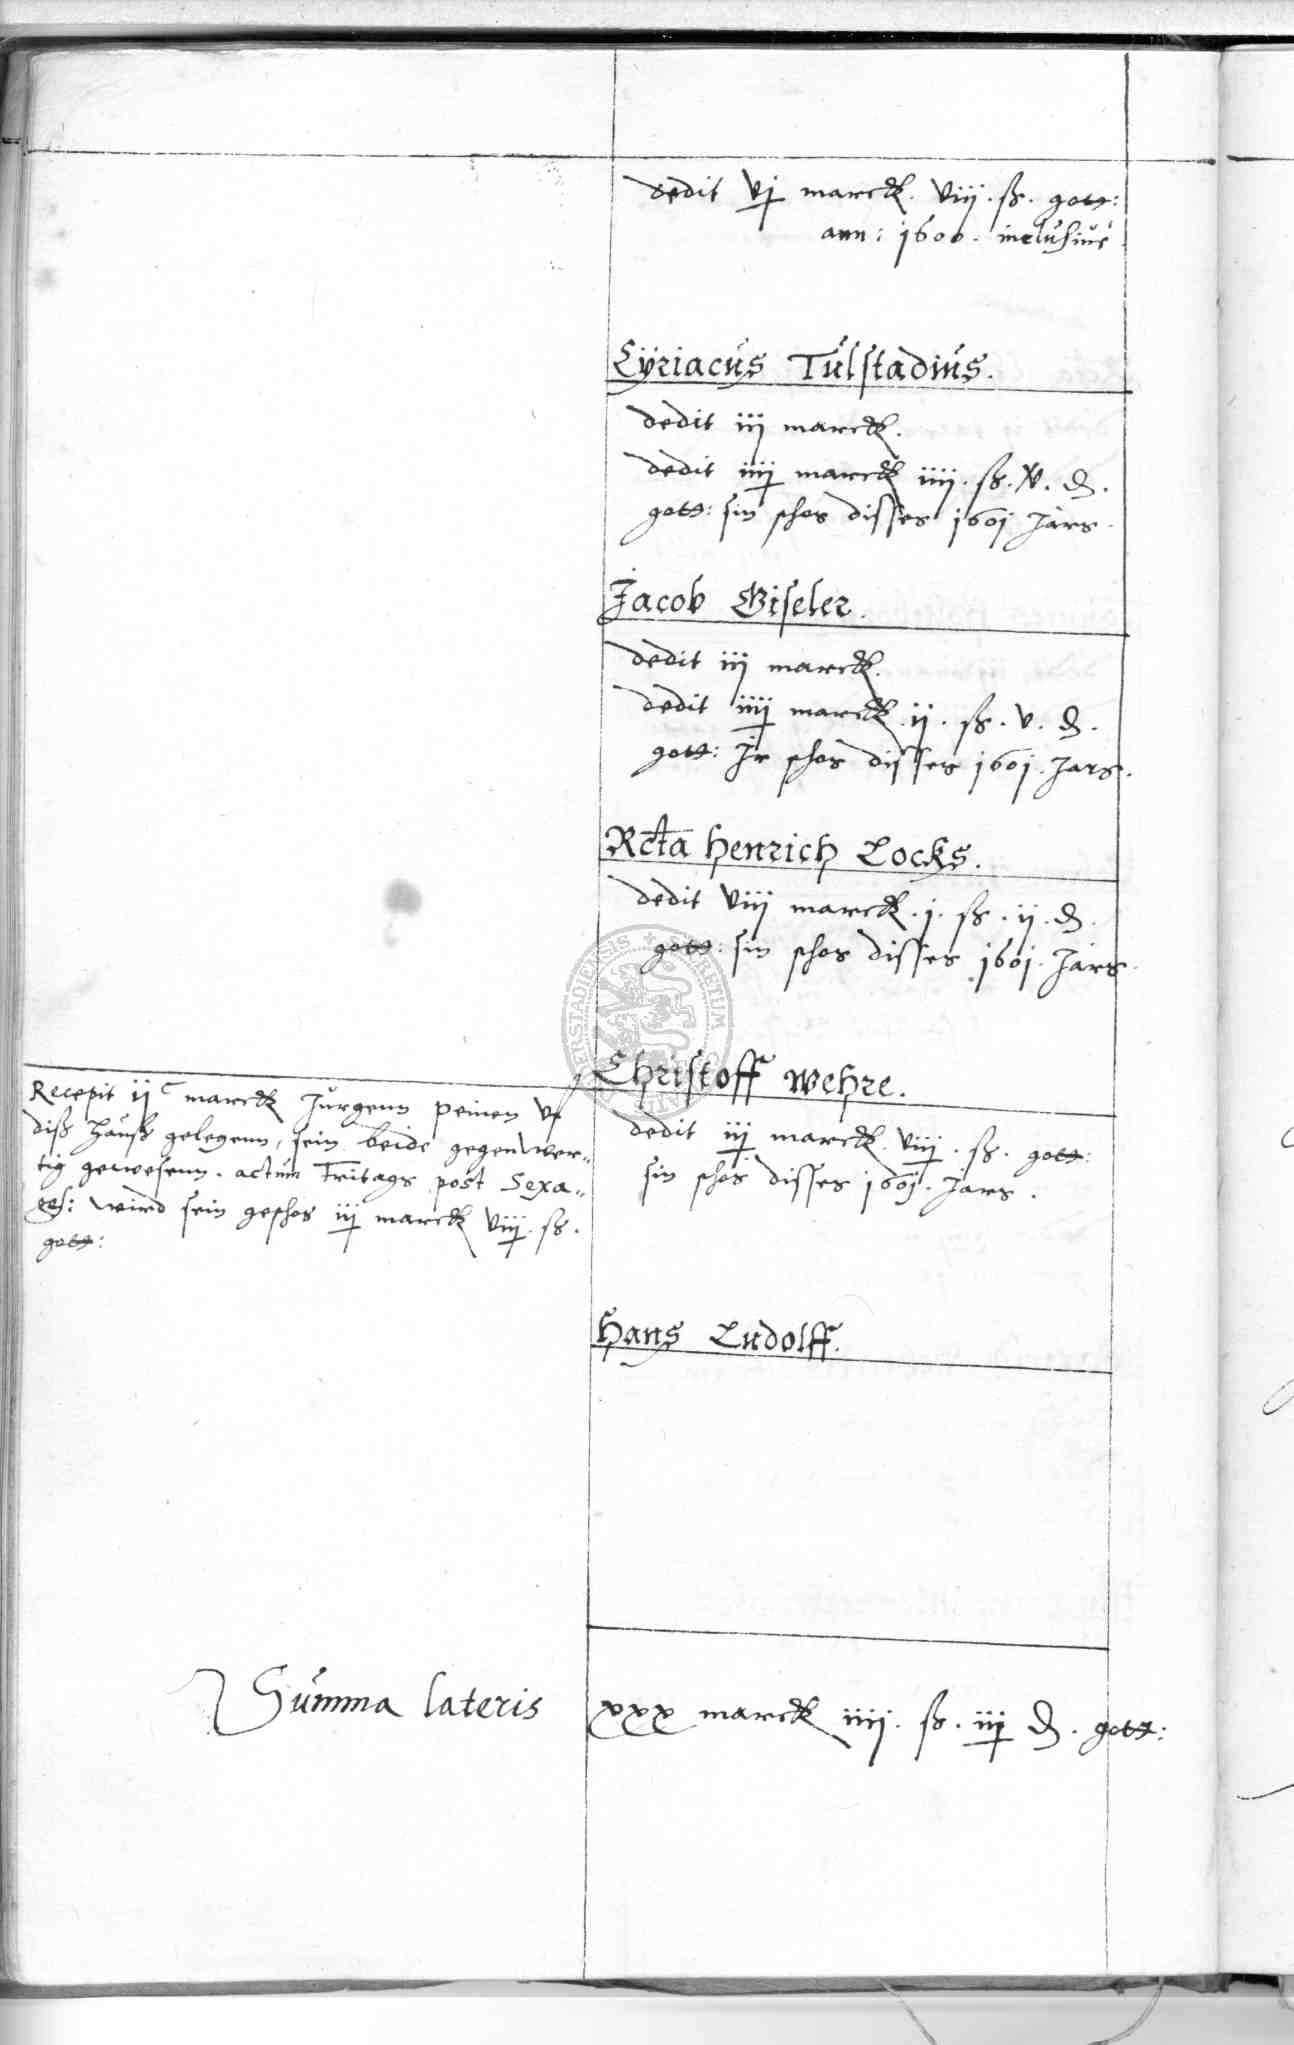 dedit vj marck. viij. ß. gott:
ann: 1600. inclusiue
Cÿriacus Tulstadius.
dedit iij marck.
dedit iiij marck iiij. ß. v. d.
gott: sin schos disses 1601 Jars.
Jacob Giseler.
dedit iij marck.
dedit iiij marck. ij. ß. v. d.
gott: Jr schos disses 1601. Jars.
Rcta Henrich Locks.
dedit viij marck. j. ß. ij. d.
gott: sin schos disses 1601. Jars.
Christoff Wehre.
Recepit ij c marck Jurgenn peinen vf
diß hauß gelegenn, sein beide gegenwer-
tig gewesenn. actum Fritags post Sexa-
ges: wird sein geschos iij marck viij. ß.
gott:
dedit iij marck. viij. ß. gott:
sin schos disses 1601. Jars.
Hans Ludolff.
Summa lateris xxx marck iiij. ß. iij d. gott: